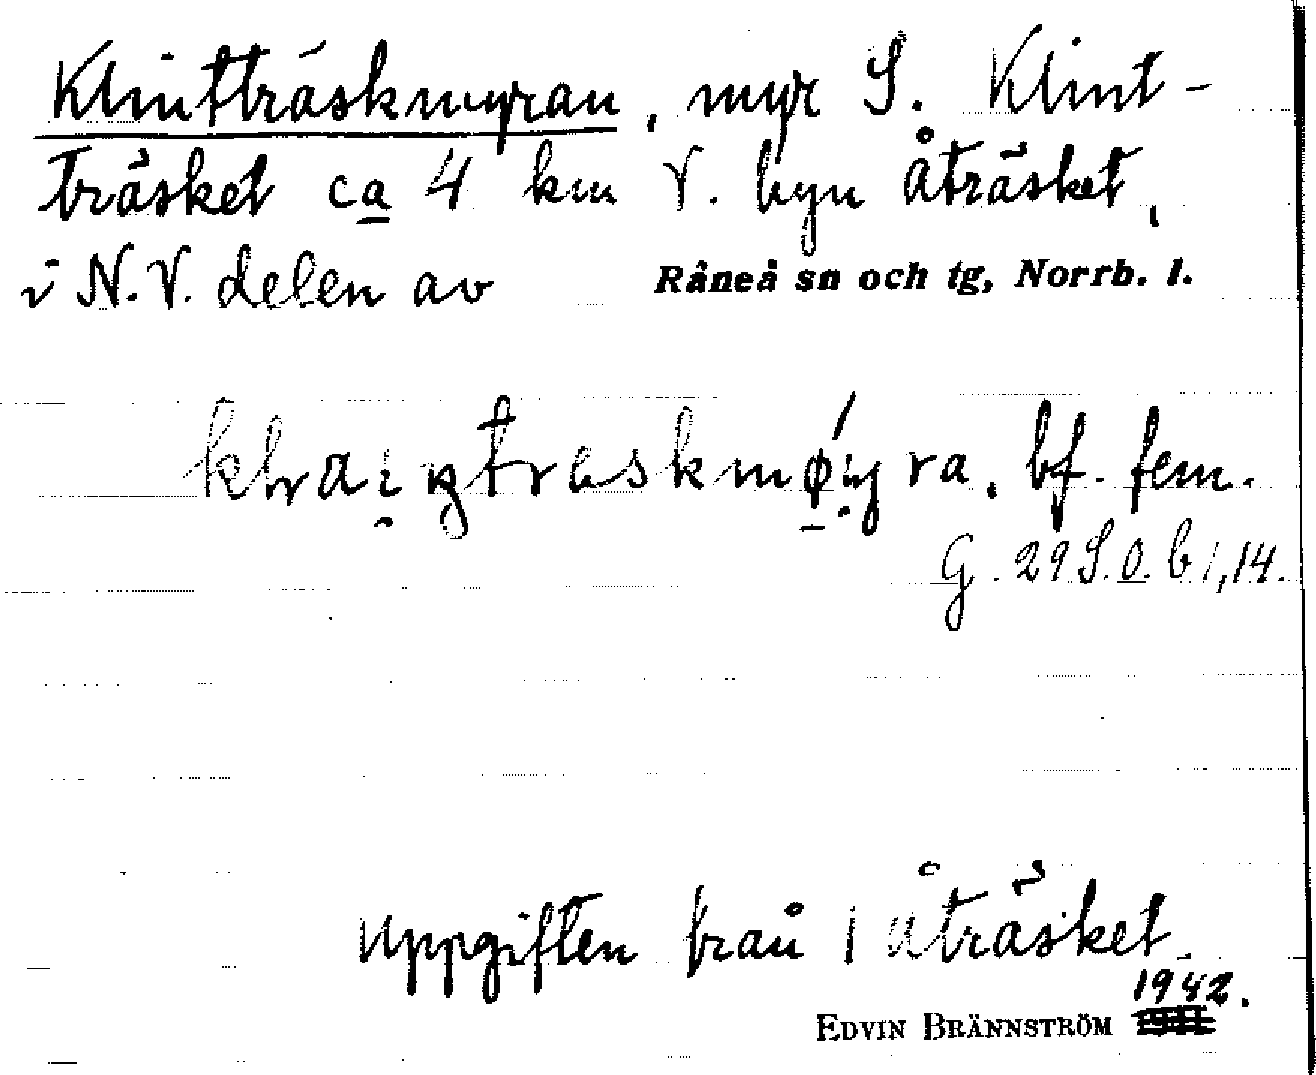 Klintträskmyran, myr S. Klint-
träsket ca 4 km V. byn Åträsket,
i N.V. delen av Råneå sn och tg, Norrb. l.
bf. fem.
G. 29 S.O. b 1,14.
Uppgiften från 1 Åträsket
1942.
EDVIN BRÄNNSTRÖM